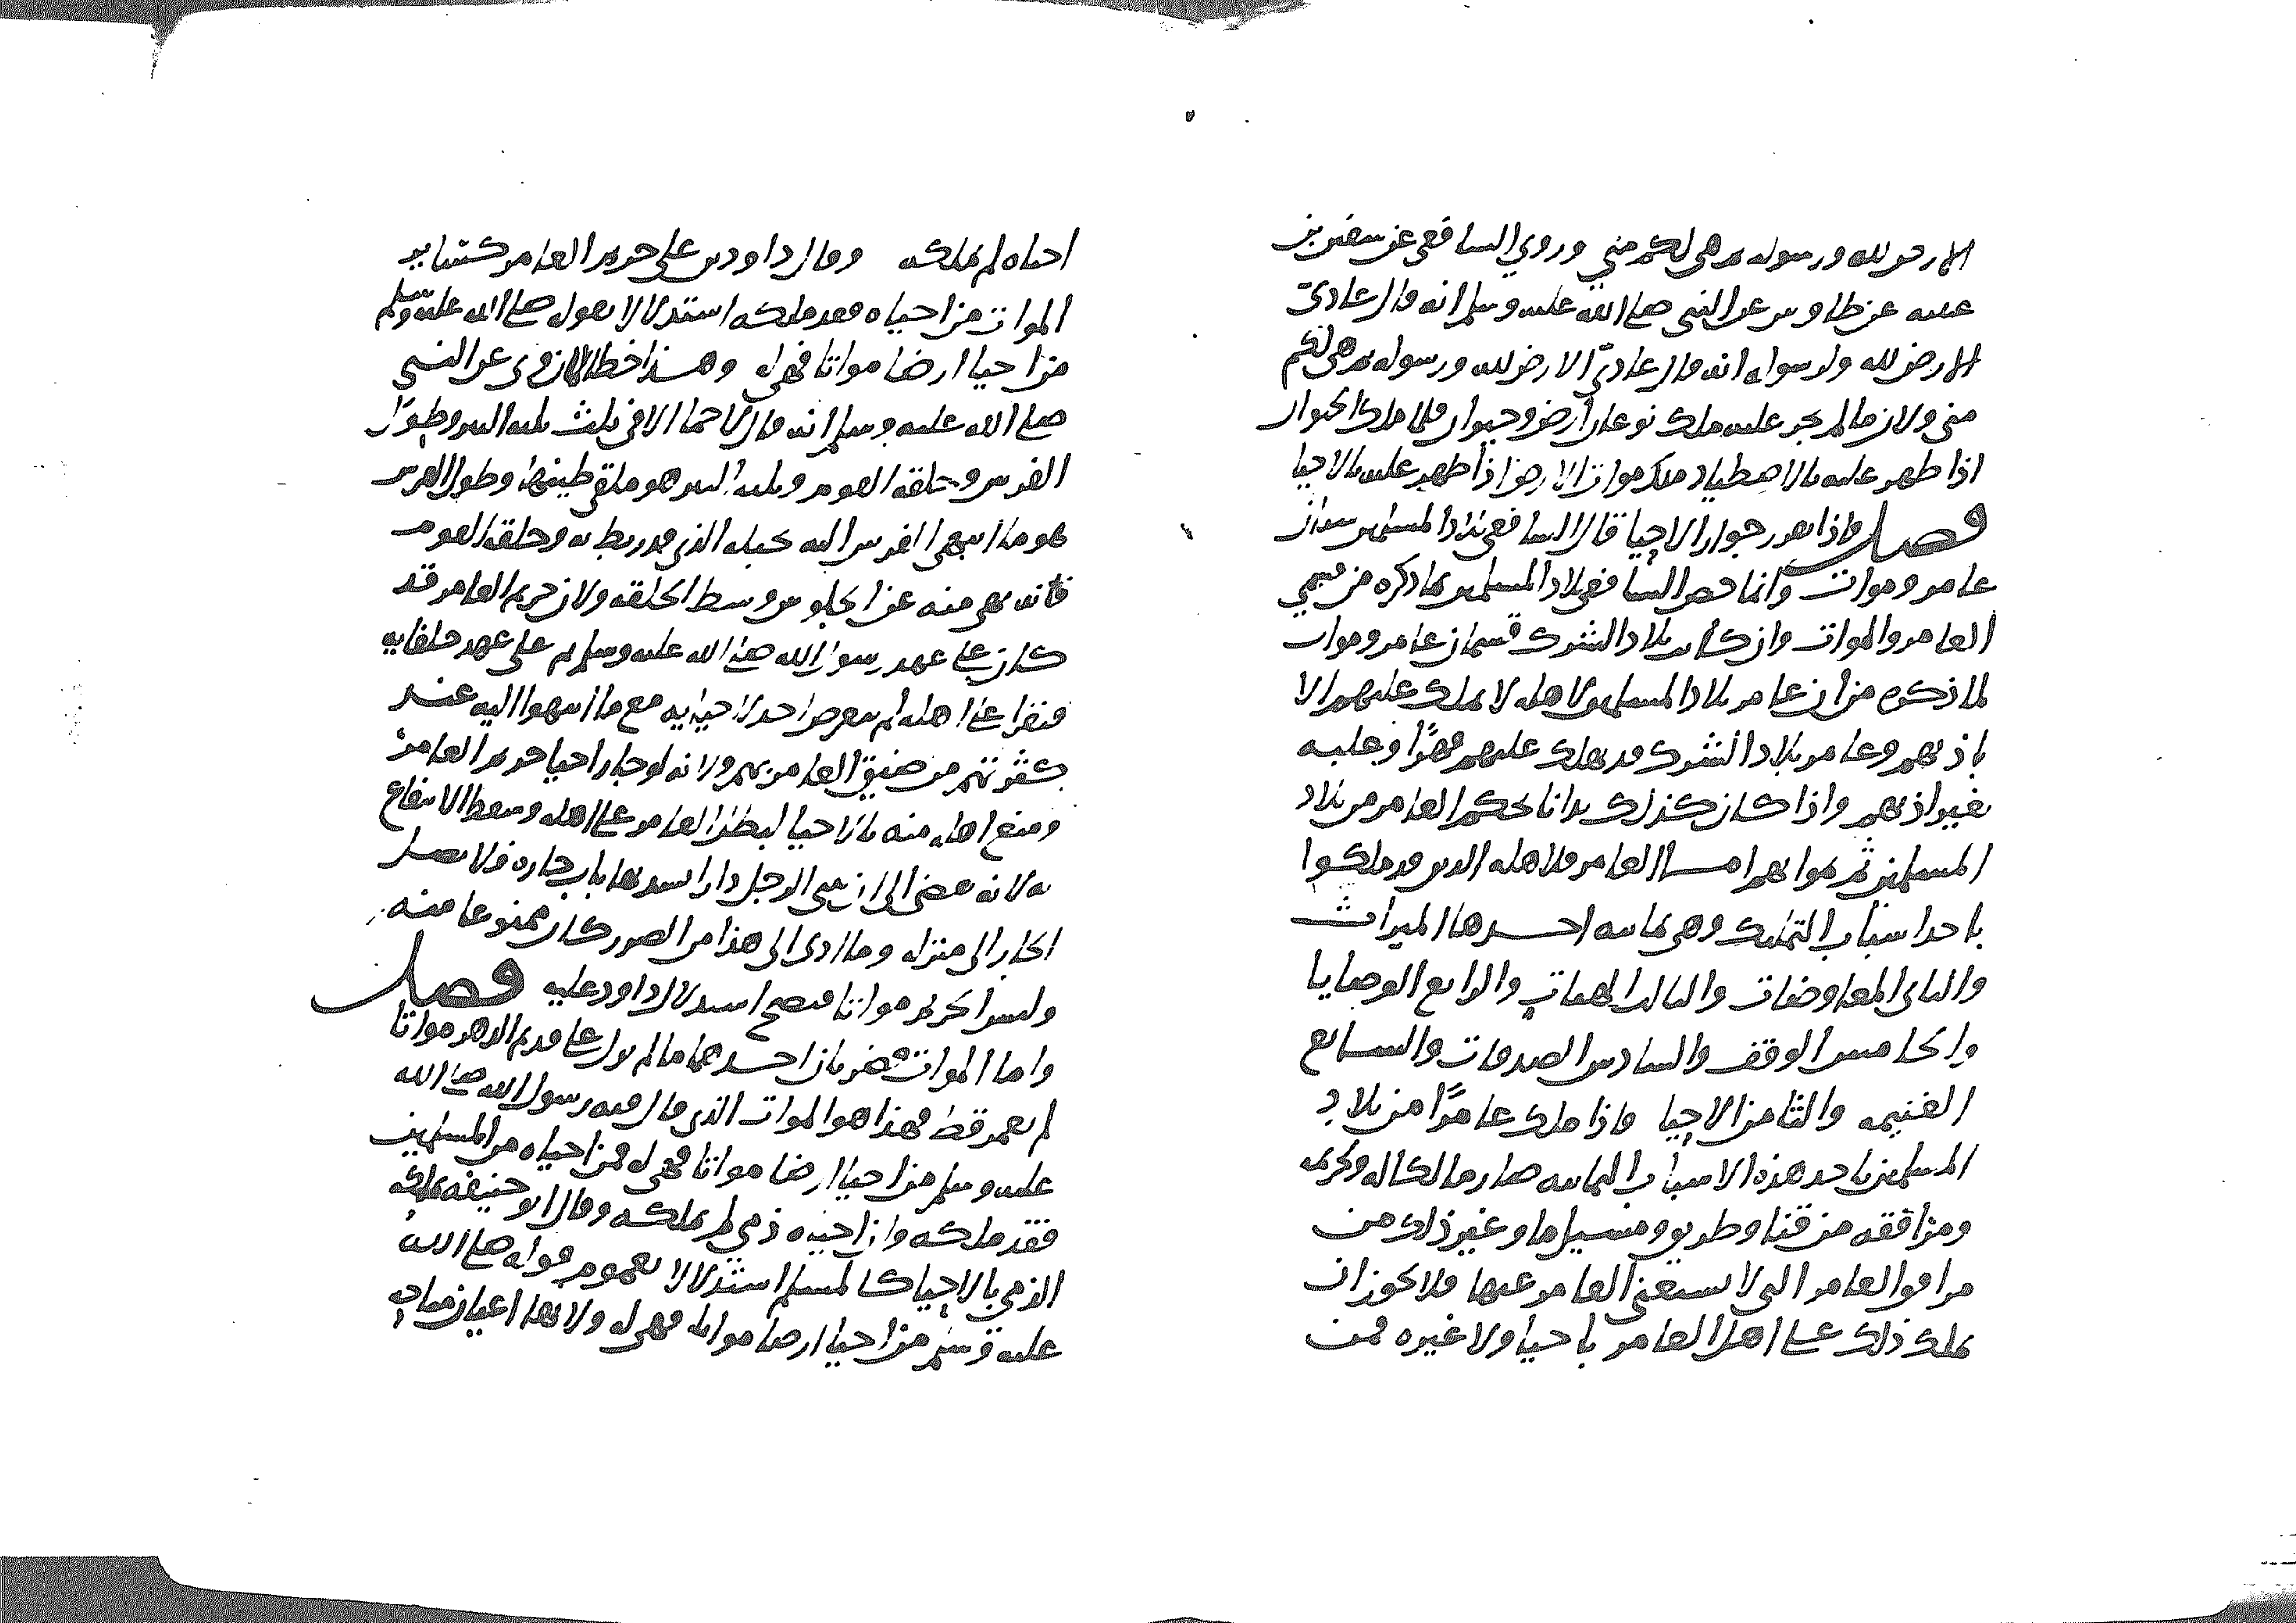 الارض لله ورسوله ثم هي لكم مني وروي الشافعي عن سفين بن
عيينه عن طاوس عن النبي صلى الله عليه وسلم انه قال عادي
الارض لله ولرسوله انه قال عادي الارض لله ورسوله ثم هي لكم
مني ولان ما لم يجر عليه ملك نوعان ارض وحيوان فلما ملك الحيوان
اذا ظهر عليه بالاصطياد ملك موات الارض اذا ظهر عليه بالاحيا
فصل فاذا تقرر جواز الاحيا قال الشافعي بلاد المسلمين شيان
عامر وموات وانما خص الشافعي بلاد المسلمين بما ذكره من قسمي
العامر والموات وان كانت بلاد الشرك قسمان عامر وموات
لما ذكره من ان عامر بلاد المسلمين لاهله لا يملك عليهم الا
باذنهم وعامر بلاد الشرك قد يملك عليهم قهرًا وغلبه
بغير اذنهم واذا كان كذلك بدانا بحكم العامر من بلاد
المسلمين ثم بمواتهم امـا العامر فلاهله الذين قد ملكوا
باحد اسباب التمليك وهي ثمانيه احـدها الميراث
والثاني المعاوضات والثالث الهبات والرابع الوصايا
والخامس الوقف والسادس الصدقات والسـابع
الغنيمه والثامن الاحيا فاذا ملك عامرًا من بلاد
المسلمين باحد هذه الاسباب الثمانيه صار مالكا له ولحريمه
ومرافقه من قنا وطريق ومسيل ما وغير ذلك من
مرافق العامر التي لا يستغني العامر عنها فلا يجوز ان
يملك ذلك على اهل العامر باحيا ولا غيره فمن
احياه لم يملكه وقال داود بن علي حريم العامر كساير
الموات من احياه فقد ملكه استدلالا بقوله صلى الله عليه وسلم
من احيا ارضا مواتا فهي له وهـذا خطا لما روي عن النبي
صلى الله عليه وسلم انه قال لا حما الا في ثلث ثله البير وطوَل
الفرس وحلقه القوم وثله البير هو ملقى طينها وطول الفرس
هو ما انتهى الفرس اليه بحبله الذي قد ربط به وحلقه القوم
فانه نهي منه عن الجلوس وسط الحلقه ولان حريم العامر قد
كان على عهد رسول الله صلى الله عليه وسلم ثم على عهد خلفايه
مقرا على اهله لم يتعرض احد لاحيايه مع ما انتهوا اليه عند
كثرتهم من ضيق العامر بهم ولانه لو جاز احيا حريم العامر
ومنع اهله منه بالاحيا لبطل العامر على اهله وسقط الانتفاع
به لانه يفضي الى ان يبني الرجل دارا يسد بها باب جاره فلا يصل
الجار الى منزله وما ادى الى هذا من الضرر كان ممنوعا منه
وليس الحريم مواتا فيصح استدلال داود عليه فصل
واما الموات فضربان احـدهما ما لم يزل على قديم الدهر مواتا
لم يعمر قط فهذا هو الموات الذي قال فيه رسول الله صلى الله
عليه وسلم من احيا ارضا مواتا فهي له فمن احياه من المسلمين
فقد ملكه وان احياه ذمي لم يملكه وقال ابو حنيفه يملك
الذمي بالاحيا كالمسلم استدلالا بعموم قوله صلى الله
عليه وسلم من احيا ارضا مواتا فهي له ولانها اعيان مباحه